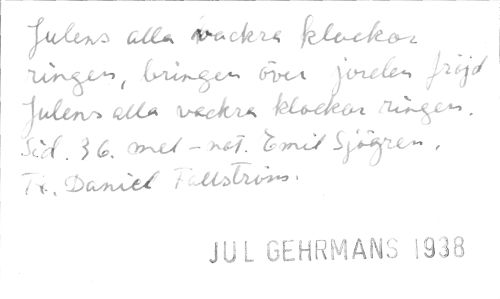 Julens alla vackra klockor
ringen, bringen över jorden fröjd
Julens alla vackra klockor ringen.
Sid. 36. mel – not. Emil Sjögren.
Tx. Daniel Fallström.
JUL GEHRMANS 1938